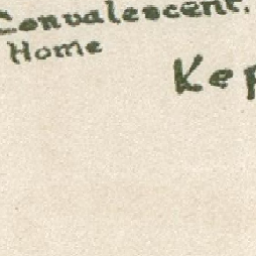 Convalescent.
Home
Kep